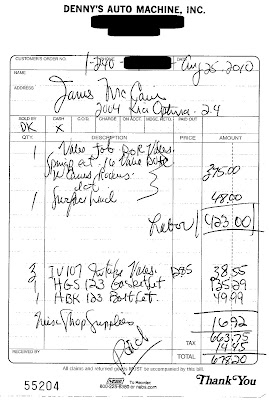 DENNY'S AUTO MACHINE, INC.
CUSTOMER'S ORDER NO.
1-240-
Aug 25 2010
NAME
James McCane
ADDRESS
2004 Kia Optima - 2.4
SOLD BY CASH C.O.D. CHARGE ON ACCT. MDSE. RETD. PAID OUT
DK X
QTY. DESCRIPTION PRICE AMOUNT
1 Valve Job
375.00
1 Surface
48.00
Labor 423.00
3 IV107 Intake Valves. 38.55
1 HGS123 Gasket Set 135.29
1 HBK 123 Bolt Set. 49.99
Misc Shop Supplies 16.92
Paid
663.75
RECEIVED BY TAX 14.45
TOTAL 678.20
All claims and returned goods MUST be accompanied by this bill.
55204
To Reorder:
800-225-6380 or nebs.com
Thank You